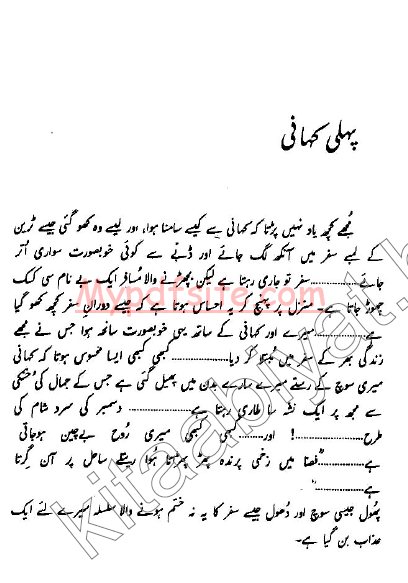 پہلی کہانی
مجھے کچھ یاد نہیں پڑتا کہ کہانی سے کیسے سامنا ہوا، اور کیسے وہ کھو گئی جیسے ٹرین
کے لمبے سفر میں آنکھ لگ جائے اور ڈبے سے کوئی خوبصورت سواری اُتر
جائے..............سفر تو جاری رہتا ہے لیکن بچھڑنے والا مسافر ایک بے نام سی کسک
چھوڑ جاتا ہے۔ منزل پر پہنچ کر یہ احساس ہوتا ہے کہ جیسے دورانِ سفر کچھ کھو گیا
ہے..............میرے اور کہانی کے ساتھ یہی خوبصورت سانحہ ہوا جس نے مجھے
زندگی بھر کے سفر میں مُبتلا کر دیا..............کبھی کبھی ایسا محسوس ہوتا کہ کہانی
میری سوچ کے رستے میرے سارے بدن میں پھیل گئی ہے جس کے جمال کی خُنکی
سے مجھ پر ایک نشہ سا طاری رہتا ہے.............. دسمبر کی سرد شام کی
طرح..............! اور..............کبھی کبھی میری رُوح بےچین ہوجاتی
ہے..............فضا میں زخمی پرندہ پھڑ پھڑاتا ہوا ریتلے ساحل پر آن گرتا
ہے..............
پھُول جیسی سوچ اور دُھول جیسے سفر کا یہ نہ ختم ہونے والا سلسلہ میرے لئے ایک
عذاب بن گیا ہے۔
Mypdfsite.com
kitaabiyat.b